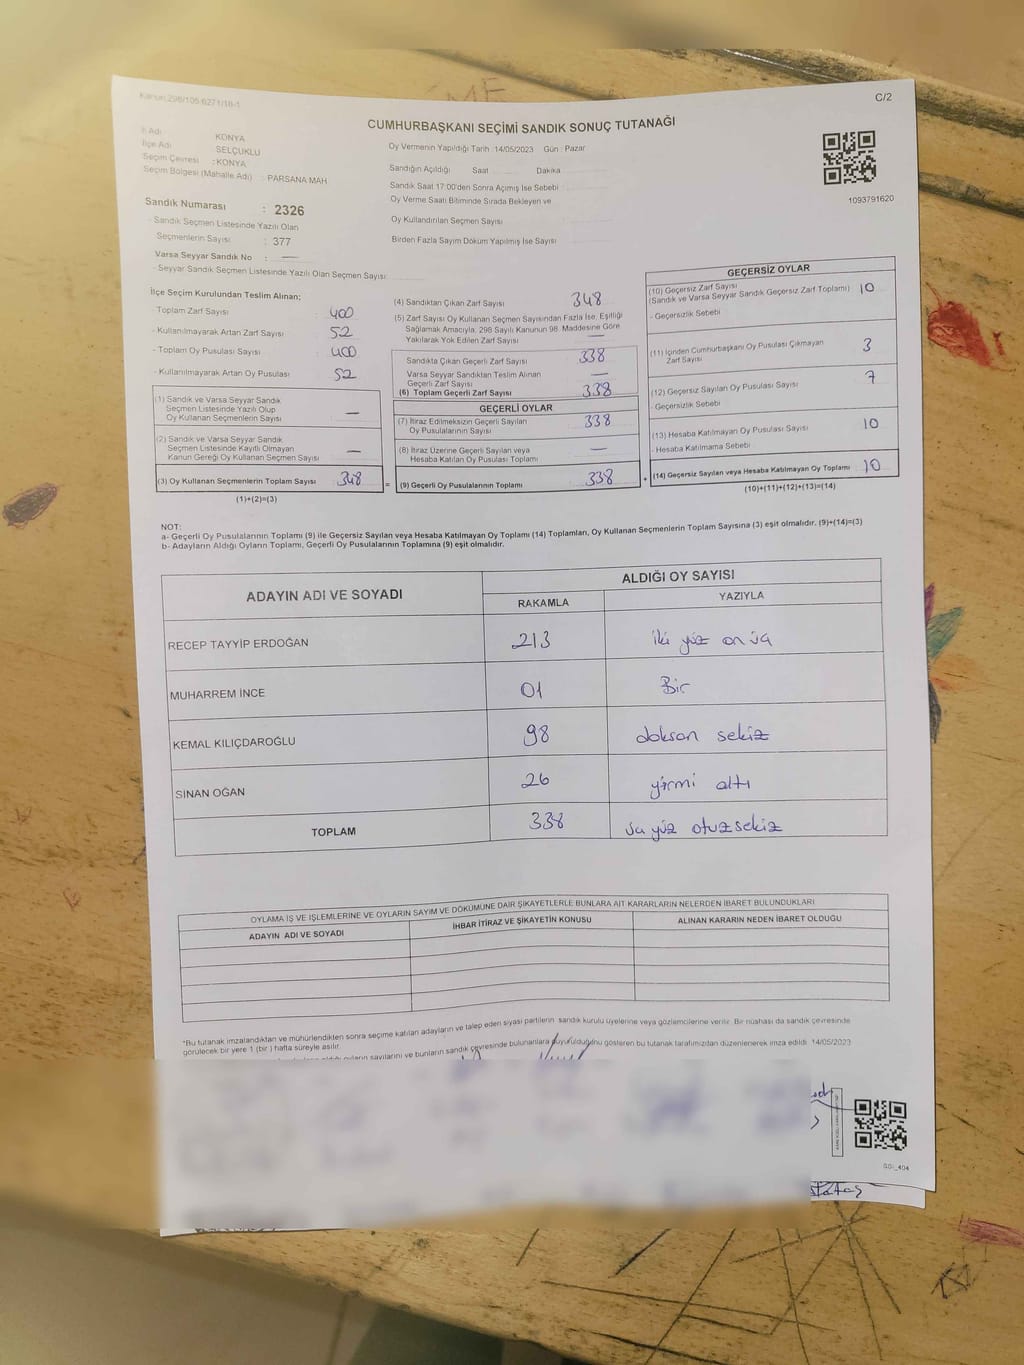 Kanun:298/105,6271/18-1
C/2
CUMHURBAŞKANI SEÇİMİ SANDIK SONUÇ TUTANAĞI
İl Adı : KONYA
İlçe Adı : SELÇUKLU
Seçim Çevresi : KONYA
Seçim Bölgesi (Mahalle Adı) : PARSANA MAH
Sandık Numarası : 2326
- Sandık Seçmen Listesinde Yazılı Olan
Seçmenlerin Sayısı : 377
Varsa Seyyar Sandık No : —
- Seyyar Sandık Seçmen Listesinde Yazılı Olan Seçmen Sayısı:
Oy Vermenin Yapıldığı Tarih :14/05/2023 Gün : Pazar
Sandığın Açıldığı Saat Dakika
Sandık Saat 17:00'den Sonra Açımış İse Sebebi
Oy Verme Saati Bitiminde Sırada Bekleyen ve
Oy Kullandırılan Seçmen Sayısı
Birden Fazla Sayım Döküm Yapılmış İse Sayısı
1093791620
İlçe Seçim Kurulundan Teslim Alınan;
- Toplam Zarf Sayısı : 400
- Kullanılmayarak Artan Zarf Sayısı : 52
- Toplam Oy Pusulası Sayısı : 400
- Kullanılmayarak Artan Oy Pusulası : 52
(1) Sandık ve Varsa Seyyar Sandık
Seçmen Listesinde Yazılı Olup
Oy Kullanan Seçmenlerin Sayısı —
(2) Sandık ve Varsa Seyyar Sandık
Seçmen Listesinde Kayıtlı Olmayan
Kanun Gereği Oy Kullanan Seçmen Sayısı —
(3) Oy Kullanan Seçmenlerin Toplam Sayısı 348
(1)+(2)=(3)
(4) Sandıktan Çıkan Zarf Sayısı 348
(5) Zarf Sayısı Oy Kullanan Seçmen Sayısından Fazla İse, Eşitliği
Sağlamak Amacıyla, 298 Sayılı Kanunun 98. Maddesine Göre
Yakılarak Yok Edilen Zarf Sayısı —
Sandıkta Çıkan Geçerli Zarf Sayısı 338
Varsa Seyyar Sandıktan Teslim Alınan
Geçerli Zarf Sayısı —
(6) Toplam Geçerli Zarf Sayısı 338
GEÇERLİ OYLAR
(7) İtiraz Edilmeksizin Geçerli Sayılan
Oy Pusulalarının Sayısı 338
(8) İtiraz Üzerine Geçerli Sayılan veya
Hesaba Katılan Oy Pusulası Toplamı —
= (9) Geçerli Oy Pusulalarının Toplamı 338 +
GEÇERSİZ OYLAR
(10) Geçersiz Zarf Sayısı
(Sandık ve Varsa Seyyar Sandık Geçersiz Zarf Toplamı) 10
- Geçersizlik Sebebi
(11) İçinden Cumhurbaşkanı Oy Pusulası Çıkmayan
Zarf Sayısı 3
(12) Geçersiz Sayılan Oy Pusulası Sayısı 7
- Geçersizlik Sebebi
(13) Hesaba Katılmayan Oy Pusulası Sayısı 10
- Hesaba Katılmama Sebebi
(14) Geçersiz Sayılan veya Hesaba Katılmayan Oy Toplamı 10
(10)+(11)+(12)+(13)=(14)
NOT:
a- Geçerli Oy Pusulalarının Toplamı (9) ile Geçersiz Sayılan veya Hesaba Katılmayan Oy Toplamı (14) Toplamları, Oy Kullanan Seçmenlerin Toplam Sayısına (3) eşit olmalıdır. (9)+(14)=(3)
b- Adayların Aldığı Oyların Toplamı, Geçerli Oy Pusulalarının Toplamına (9) eşit olmalıdır.
ADAYIN ADI VE SOYADI
ALDIĞI OY SAYISI
RAKAMLA YAZIYLA
RECEP TAYYİP ERDOĞAN 213 iki yüz on üç
MUHARREM İNCE 01 Bir
KEMAL KILIÇDAROĞLU 98 doksan sekiz
SİNAN OĞAN 26 yirmi altı
TOPLAM 338 üç yüz otuzsekiz
OYLAMA İŞ VE İŞLEMLERİNE VE OYLARIN SAYIM VE DÖKÜMÜNE DAİR ŞİKAYETLERLE BUNLARA AİT KARARLARIN NELERDEN İBARET BULUNDUKLARI
ADAYIN ADI VE SOYADI İHBAR İTİRAZ VE ŞİKAYETİN KONUSU ALINAN KARARIN NEDEN İBARET OLDUĞU
*Bu tutanak imzalandıktan ve mühürlendikten sonra seçime katılan adayların ve talep eden siyasi partilerin sandık kurulu üyelerine veya gözlemcilerine verilir. Bir nüshası da sandık çevresinde
görülecek bir yere 1 (bir) hafta süreyle asılır.
oyların sayılarını ve bunların sandık çevresinde bulunanlara duyurulduğunu gösteren bu tutanak tarafımızdan düzenlenerek imza edildi. 14/05/2023